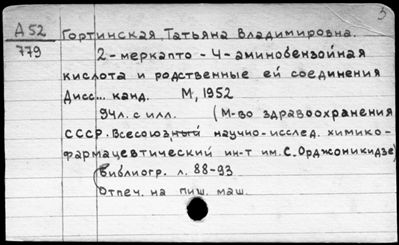 5
А52 Гортинская, Татьяна Владимировна.
779 2-меркапто-4-аминобензойная
кислота и родственные ей соединения
Дисс... канд. М, 1952
94л. с илл. (М-во здравоохранения
СССР. Всесоюзный научно-исслед. химико-
фармацевтический ин-т им. С. Орджоникидзе)
Библиогр. л. 88-93
Отпеч. на пиш. маш.